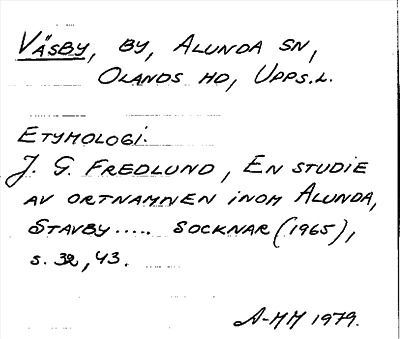 Väsby, by, Alunda sn,
Olands hd, Upps.l.
Etymologi.
J. G. Fredlund, En studie
av ortnamnen inom Alunda,
Stavby ..... socknar (1965),
s. 32, 43.
A-MM 1979.